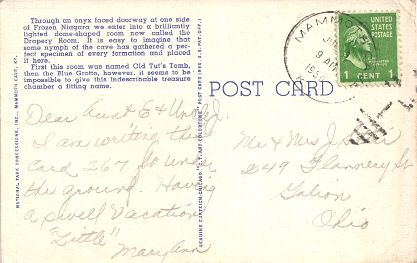 Through an onyx faced doorway at one side
of Frozen Niagara we enter into a brilliantly
lighted dome-shaped room now called the
Drapery Room. It is easy to imagine that
some nymph of the cave has gathered a per-
fect specimen of every formation and placed
it in here.
First this room was named Old Tut's Tomb,
then the Blue Grotto, however, it seems to be
impossible to give this indescribable treasure
chamber a fitting name.
Dear Aunt E & Unc J.
I am writing this
card 267 ft under
the ground. Having
a swell Vacation
"Little"
Mary Ann
NATIONAL PARK CONCESSIONS, INC., MAMMOTH CAVE, KY.
GENUINE CURTEICH-CHICAGO "C.T. ART-COLORTONE" POST CARD (REG. U.S. PAT. OFF.)
POST CARD
MAMMOTH
9
AM
UNITED STATES
POSTAGE
1 CENT 1
Mr & Mrs J.
249 Flannery St
Galion
Ohio